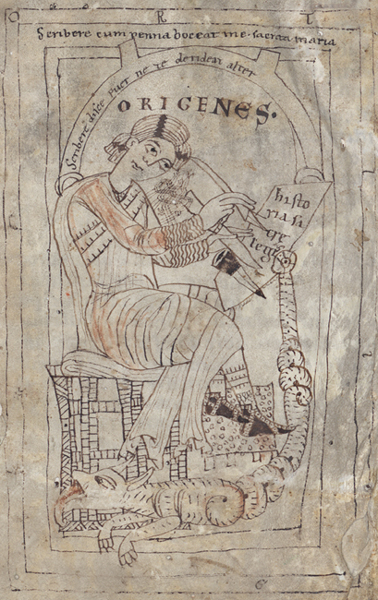 O R
Scribere cum penna doceat me sacrata maria
Scribere disce puer ne te alter
ORIGENES.
histo
ria si
legi